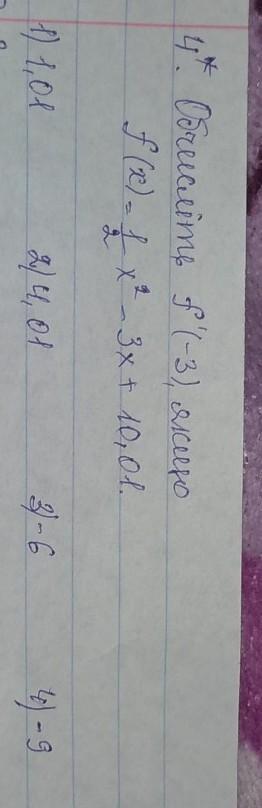 4*. Обчисліть f'(-3), якщо
f(x) = 1/2 x² - 3x + 10,01.
1) 1,01 2) 4,01 3) -6 4) -9